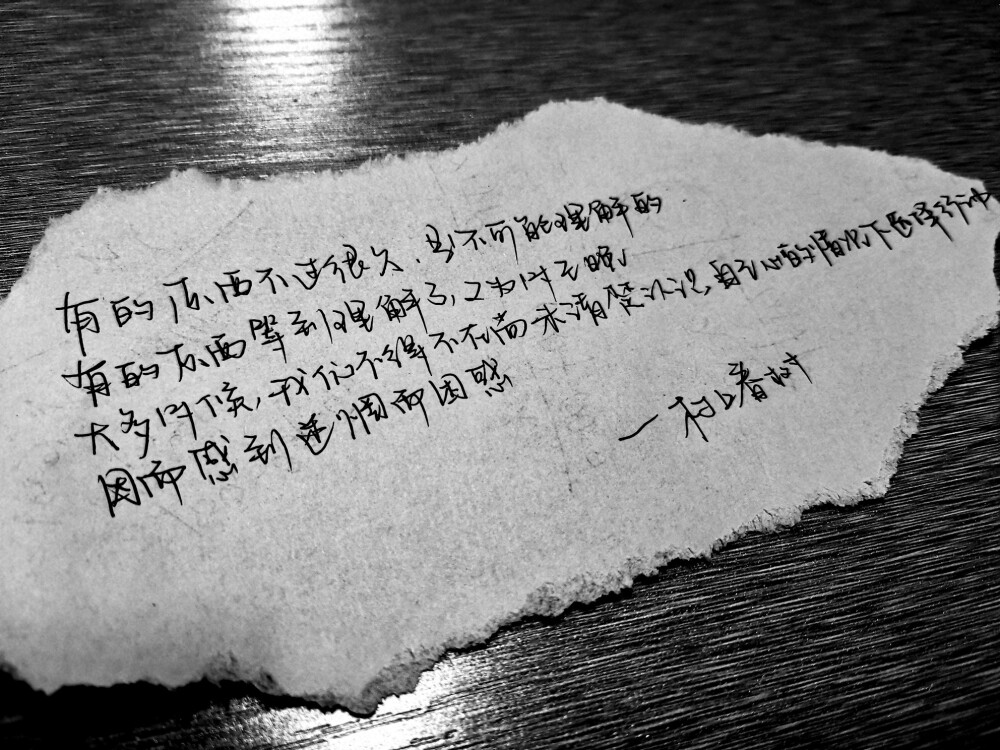 有的东西不过很久,是不可能理解的
有的东西等到理解了,又为时已晚,
大多时候,我们不得不在尚未清楚认识,自己心的情况下选择行动
因而感到迷惘而困惑
—村上春树